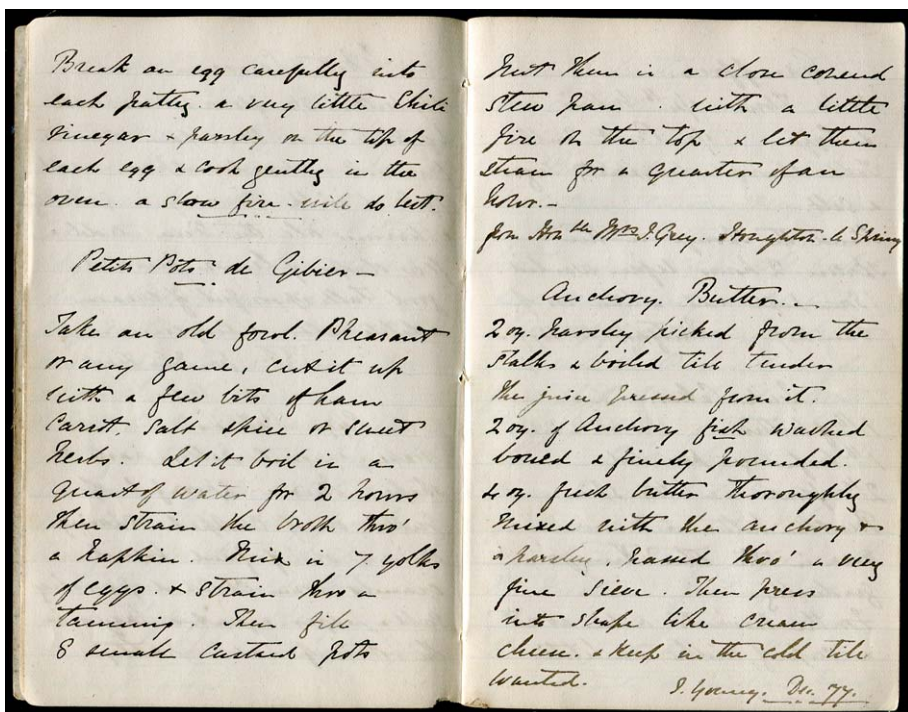 Break an egg carefully into
each patty. a very little Chili
vinegar & parsley on the top of
each egg & cook gently in the
oven. a slow fire will do best.
Petits Pots de Gibier —
Take an old fowl. Pheasant
or any game, cut it up
with a few bits of ham
Carrt. Salt spice or sweet
herbs. Let it boil in a
quart of water for 2 hours
then strain the broth thro'
a napkin. Mix in 7 yolks
of eggs. & strain thro a
tammy. Then fill
8 small custard pots
Put them in a close covered
stew pan. with a little
fire on the top & let them
steam for a quarter of an
hour. —
from Honble Mrs J. Grey. Houghton-le Spring
Anchovy. Butter. —
2 oz. parsley picked from the
stalks & boiled till tender
the juice pressed from it.
2 oz. of Anchovy fish washed
boned & finely pounded.
4 oz. fresh butter thoroughly
mixed with the anchovy &
parsley, passed thro' a very
fine sieve. Then press
into shape like cream
cheese. & keep in the cold till
wanted.
J. Young. Dec. 77.